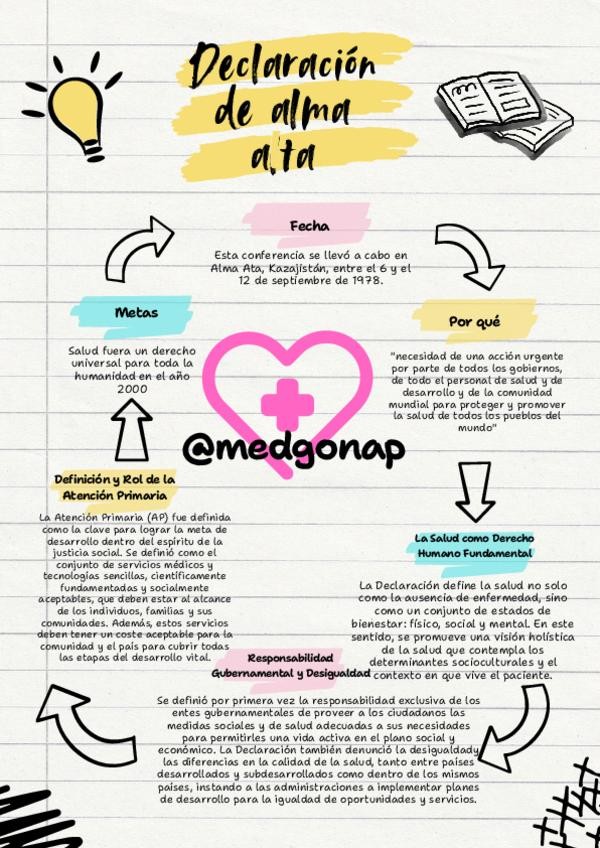 Declaración
de alma
ata
Fecha
Esta conferencia se llevó a cabo en
Alma Ata, Kazajistán, entre el 6 y el
12 de septiembre de 1978.
Por qué
"necesidad de una acción urgente
por parte de todos los gobiernos,
de todo el personal de salud y de
desarrollo y de la comunidad
mundial para proteger y promover
la salud de todos los pueblos del
mundo"
La Salud como Derecho
Humano Fundamental
La Declaración define la salud no solo
como la ausencia de enfermedad, sino
como un conjunto de estados de
bienestar: físico, social y mental. En este
sentido, se promueve una visión holística
de la salud que contempla los
determinantes socioculturales y el
contexto en que vive el paciente.
Responsabilidad
Gubernamental y Desigualdad
Se definió por primera vez la responsabilidad exclusiva de los
entes gubernamentales de proveer a los ciudadanos las
medidas sociales y de salud adecuadas a sus necesidades
para permitirles una vida activa en el plano social y
económico. La Declaración también denunció la desigualdady
las diferencias en la calidad de la salud, tanto entre países
desarrollados y subdesarrollados como dentro de los mismos
países, instando a las administraciones a implementar planes
de desarrollo para la igualdad de oportunidades y servicios.
Definición y Rol de la
Atención Primaria
La Atención Primaria (AP) fue definida
como la clave para lograr la meta de
desarrollo dentro del espíritu de la
justicia social. Se definió como el
conjunto de servicios médicos y
tecnologías sencillas, científicamente
fundamentadas y socialmente
aceptables, que deben estar al alcance
de los individuos, familias y sus
comunidades. Además, estos servicios
deben tener un coste aceptable para la
comunidad y el país para cubrir todas
las etapas del desarrollo vital.
Metas
Salud fuera un derecho
universal para toda la
humanidad en el año
2000
@medgonap